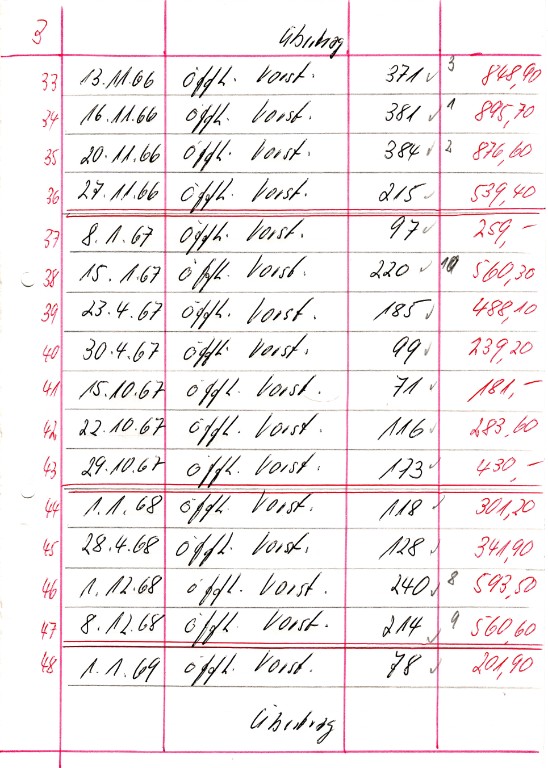 3 Übertrag
33 13.11.66 öfftl. Vorst. 371 ✓ 3 848,90
34 16.11.66 öfftl. Vorst. 381 ✓ 1 895,70
35 20.11.66 öfftl. Vorst. 384 ✓ 2 876,60
36 27.11.66 öfftl. Vorst. 215 ✓ 539,40
37 8.1.67 öfftl. Vorst. 97 ✓ 259,–
38 15.1.67 öfftl. Vorst. 220 ✓ 10 560,30
39 23.4.67 öfftl. Vorst. 185 ✓ 488,10
40 30.4.67 öfftl. Vorst. 99 ✓ 239,20
41 15.10.67 öfftl. Vorst. 71 ✓ 181,–
42 22.10.67 öfftl. Vorst. 116 ✓ 283,60
43 29.10.67 öfftl. Vorst. 173 ✓ 430,–
44 1.1.68 öfftl. Vorst. 118 ✓ 301,20
45 28.4.68 öfftl. Vorst. 128 ✓ 341,90
46 1.12.68 öfftl. Vorst. 240 ✓ 8 593,50
47 8.12.68 öfftl. Vorst. 214 ✓ 9 560,60
48 1.1.69 öfftl. Vorst. 78 ✓ 201,90
Übertrag